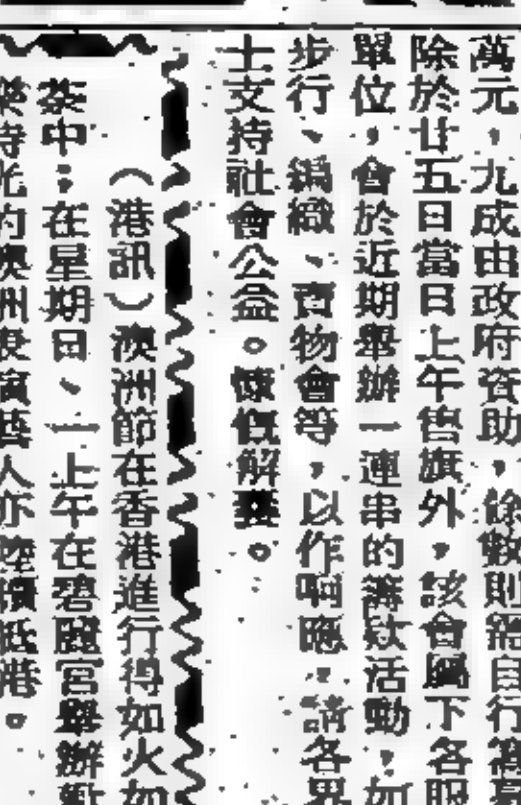 萬元，九成由政府資助，餘數則需自行籌募
除於廿五日當日上午售旗外，該會屬下各服
單位，會於近期舉辦一連串的籌款活動，如
步行、編織、賣物會等，以作響應，請各界
士支持社會公益。慷慨解囊。
（港訊）澳洲節在香港進行得如火如
荼中；在星期日、一上午在碧麗宮舉辦
樂時光的澳洲表演藝人亦陸續抵港。